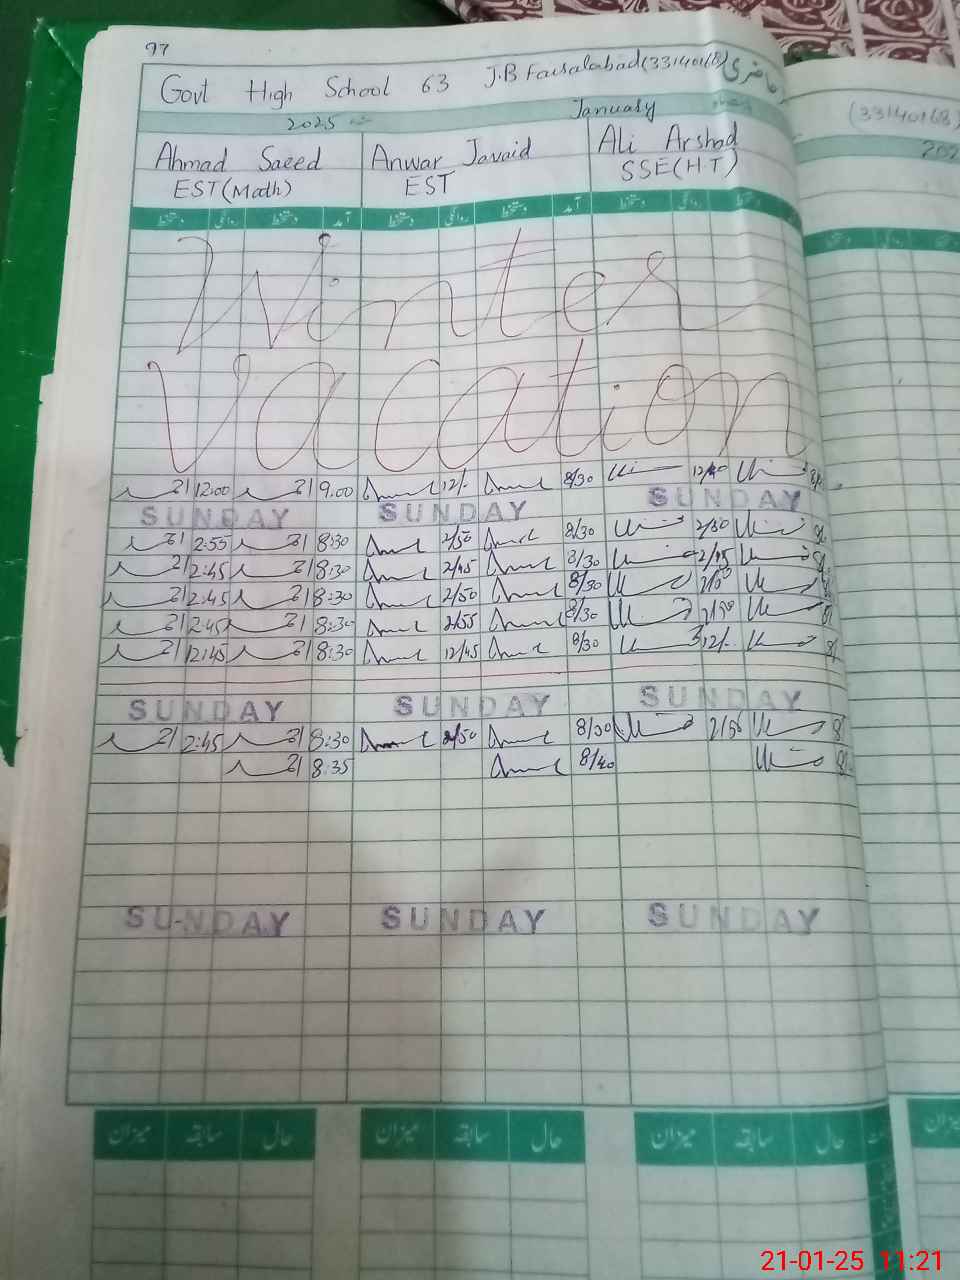 97
Govt High School 63 J.B Faisalabad (33140168) حاضری
2025 January
Ahmad Saeed Anwar Javaid Ali Arshad
EST (Math) EST SSE (H.T)
دستخط روانگی دستخط آمد دستخط روانگی دستخط آمد دستخط روانگی دستخط
Winter
Vacation
12:00 9.00 12/. 8/30
SUNDAY SUNDAY SUNDAY
2:55 8:30 2/50 8/30 2/50
2:45 8:30 2/45 8/30 2/45
2:45 8:30 2/50 8/30
2:45 8:30 2/55 8/30
12:45 8:30 12/45 8/30 12/.
SUNDAY SUNDAY SUNDAY
2:45 8:30 2/50 8/30 2/50
8:35 8/40
SUNDAY SUNDAY SUNDAY
میزان سابقہ حال میزان سابقہ حال میزان سابقہ حال
(33140168)
202
21-01-25 11:21